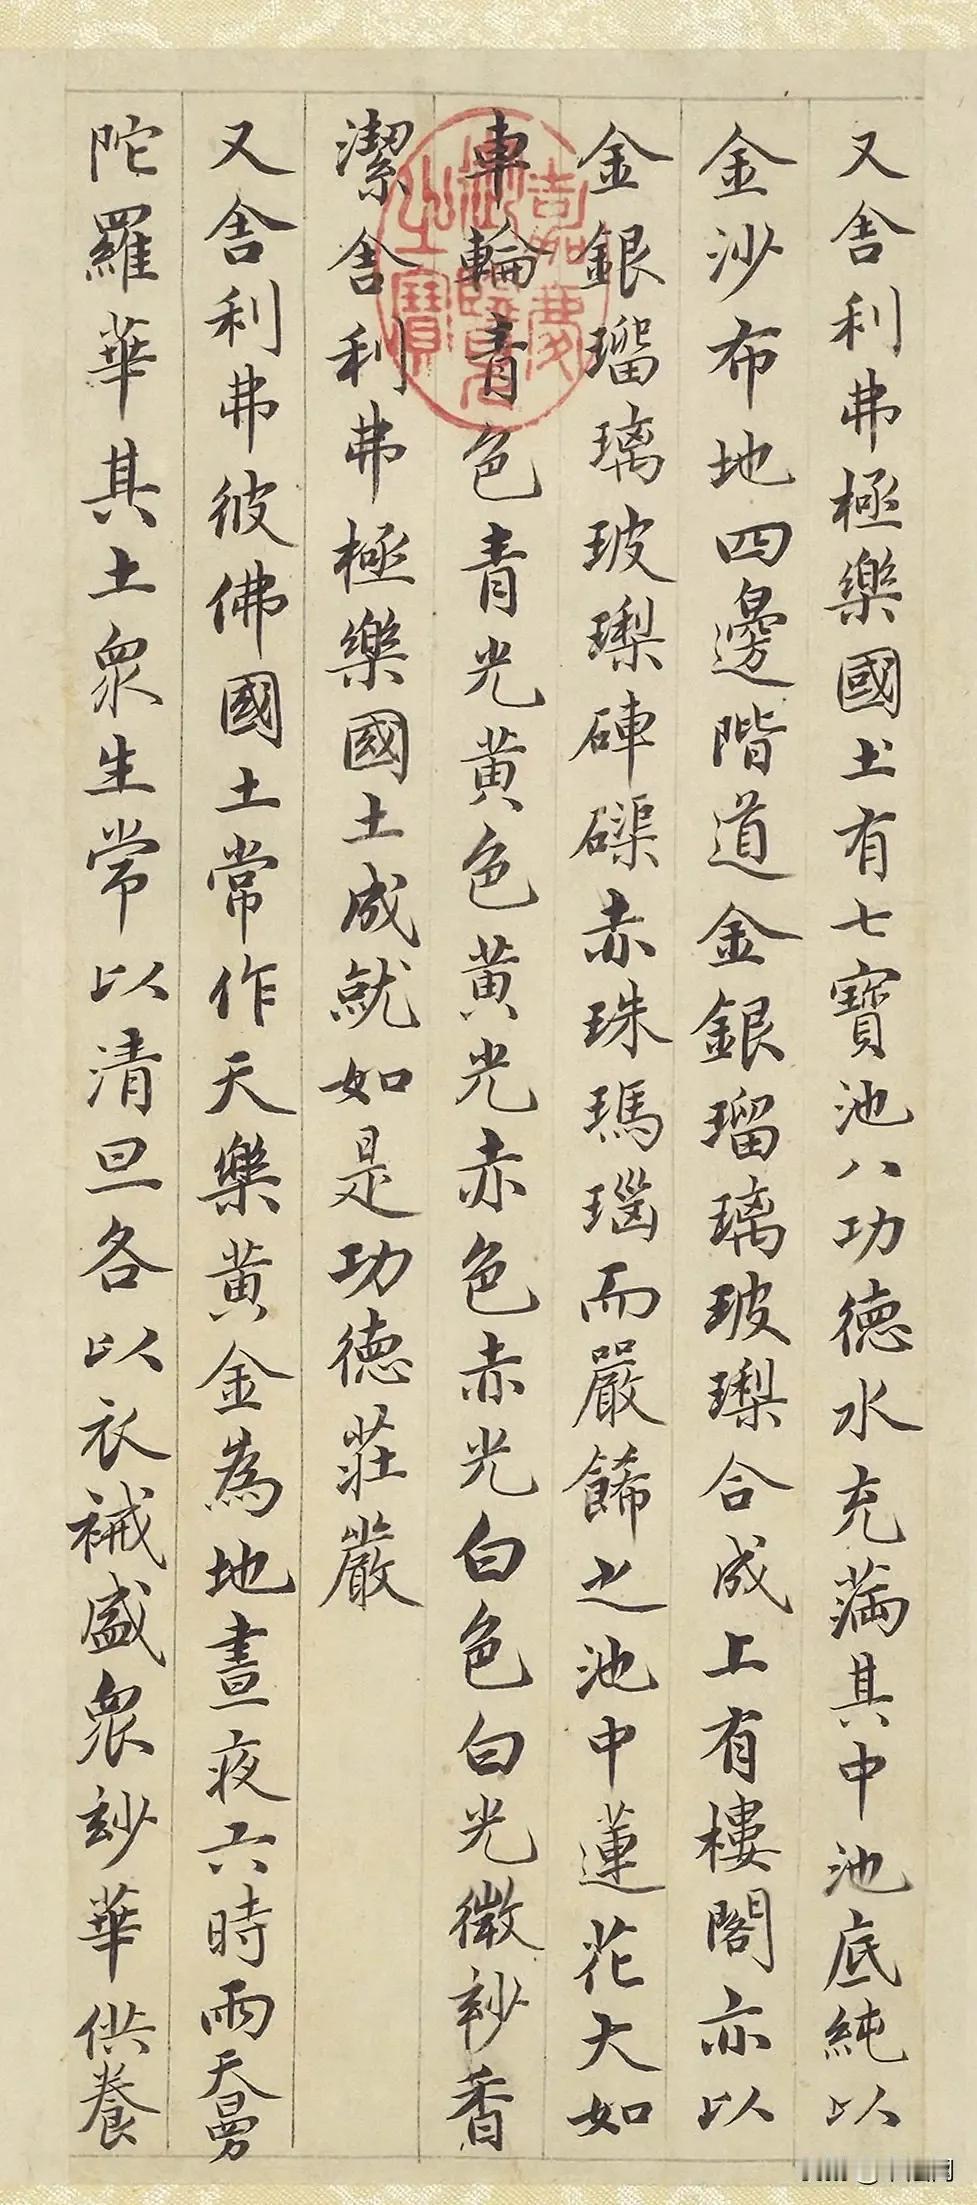 又舍利弗極樂國土有七寶池八功德水充滿其中池底純以
金沙布地四邊階道金銀瑠璃玻瓈合成上有樓閣亦以
金銀瑠璃玻瓈硨磲赤珠瑪瑙而嚴餙之池中蓮花大如
車輪青色青光黃色黃光赤色赤光白色白光微玅香
潔舍利弗極樂國土成就如是功德莊嚴
又舍利弗彼佛國土常作天樂黃金為地晝夜六時雨天曼
陀羅華其土眾生常以清旦各以衣裓盛眾玅華供養
嘉慶御覽之寶